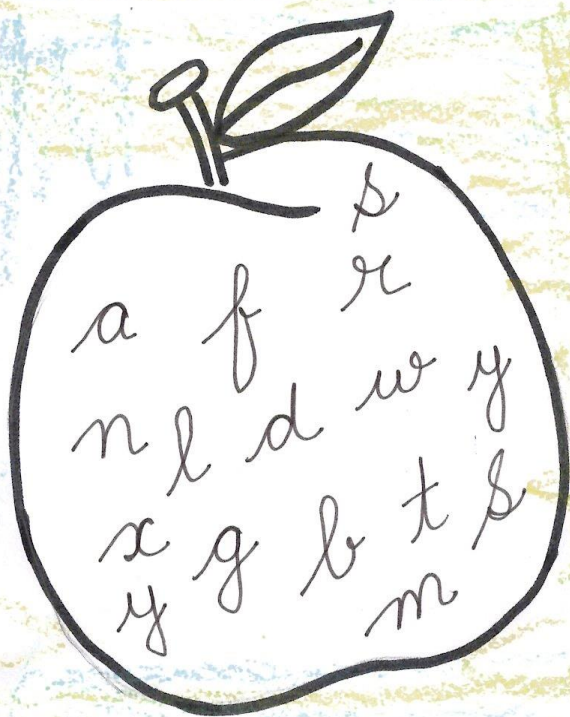 s
a f r
n l d w y
x g b t s
y m